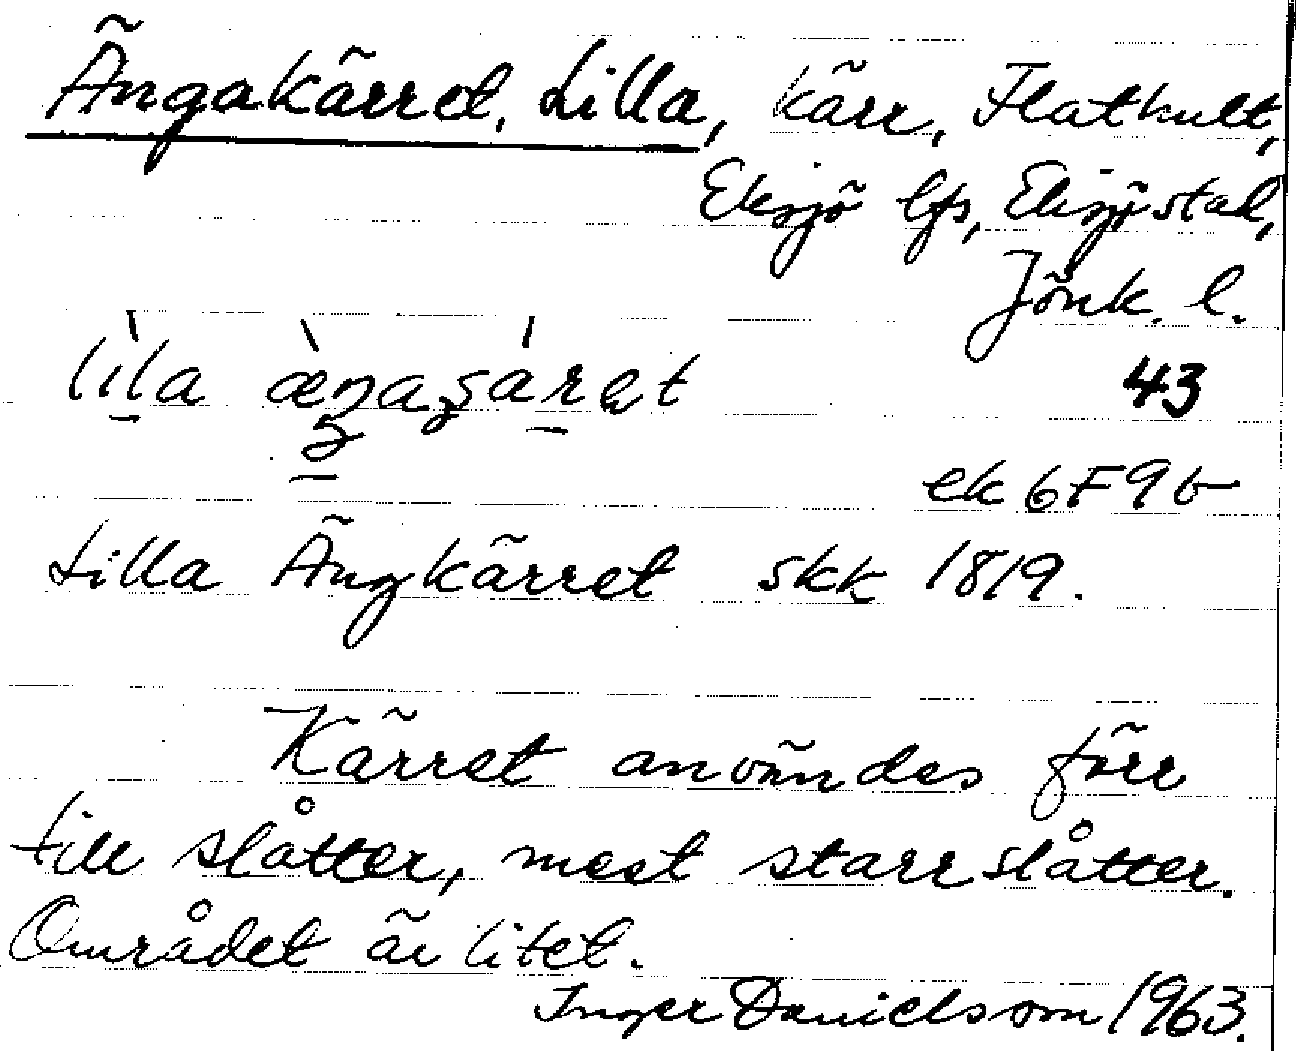 Ängakärret, Lilla, kärr, Flathult,
Eksjö lfs, Eksjö stad,
Jönk. l.
lìla
43
ek 6F9b
Lilla Ängkärret skk 1819.
Kärret användes förr
till slåtter, mest starrslåtter.
Området är litet.
Inger Danielsson 1963.